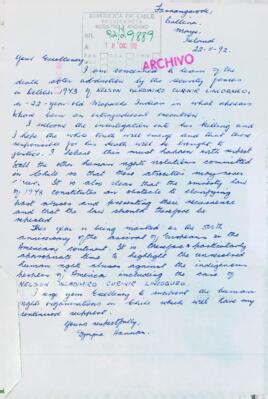 Farnangarode,
Ballina,
Mayo,
Ireland
22-11-92.
REPUBLICA DE CHILE
PRESIDENCIA
REGISTRO Y ARCHIVO
NR. 92/29889
A 18 DIC 92
ARCHIVO
Your Excellency,
I am concerned to learn of the
death after abduction by the security forces
in October 1973 of NELSON VLADIMIRO CURINIR LINCOQUEO,
a 22-year old Mapuche Indian in what appears
to have been an extrajudicial execution.
I welcome the investigation into his killing and
I hope the whole truth will emerge and that those
responsible for his death will be brought to
justice. I believe this must happen with respect
to all the other human rights violations committed
in Chile so that these atrocities may never
recur. It is also clear that the amnesty law
of 1978 constitutes an obstacle to clarifying
past abuses and preventing their recurrence
and that the law should therefore be
repealed.
This year is being marked as the 500th
anniversary of the arrival of Europeans in the
American continent. It is therefore a particularly
appropriate time to highlight the unresolved
human rights abuses against the indigenous
peoples of America including the case of
NELSON VLADIMIRO CURINIR LINCOQUEO.
I urge your Excellency to support the human
rights organisations in Chile which will have my
continued support.
Yours respectfully,
Dympna Hannan.